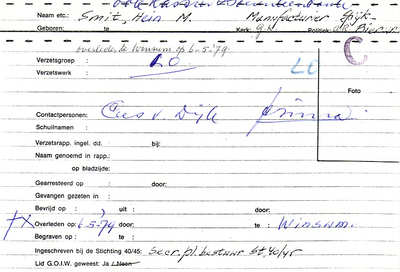 Naam etc.: Smit, Hein M. Manufacturer
Geboren: te Kerk: gn. Politiek:
overleden te Winsum op 6-5-'79
Verzetsgroep : LO LO
Verzetswerk :
C
Foto
Contactpersonen: Cees v. Dijk prima
Schuilnamen :
Verzetsrapp. ingel. dd. bij:
Naam genoemd in rapp.:
op bladzijde:
Gearresteerd op : door:
Gevangen gezeten in :
Bevrijd op : uit : door:
†X Overleden op: 6-5-79 door: te : Winsum.
Begraven op : te :
Ingeschreven bij de Stichting 40/45: Secr. pl. bestuur St. 40/45
Lid G.O.I.W. geweest: Ja / Neen